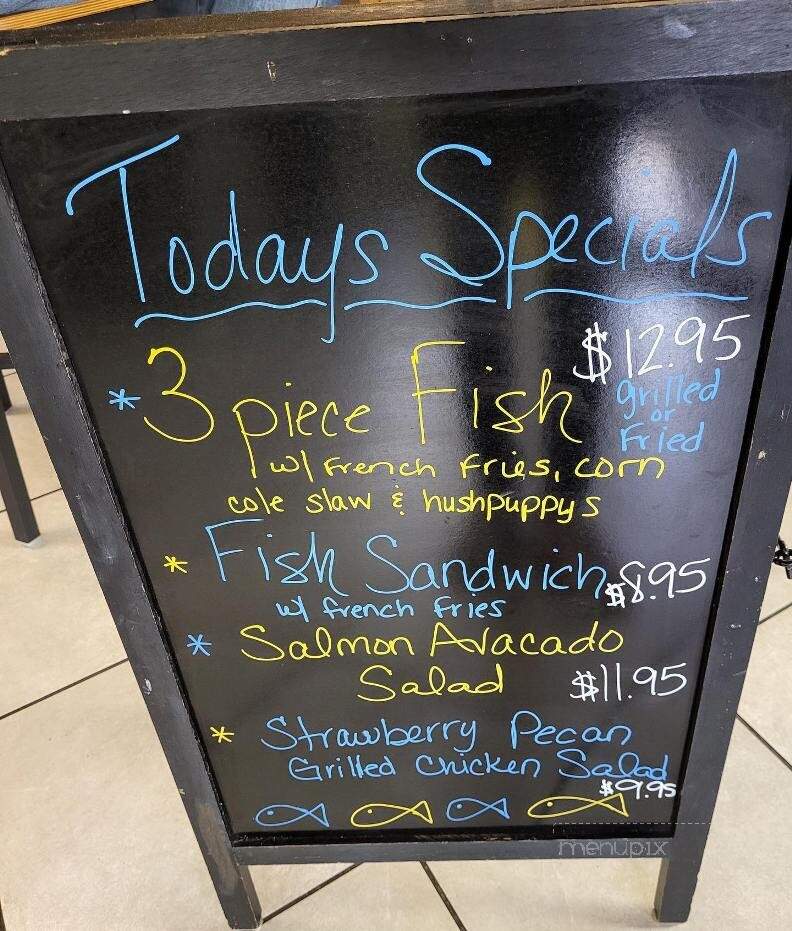 Todays Specials
$12.95
* 3 piece Fish grilled or Fried
w/ French Fries, corn
cole slaw & hushpuppys
* Fish Sandwich $8.95
w/ french Fries
* Salmon Avacado
Salad $11.95
* Strawberry Pecan
Grilled Chicken Salad
$9.95
menupix